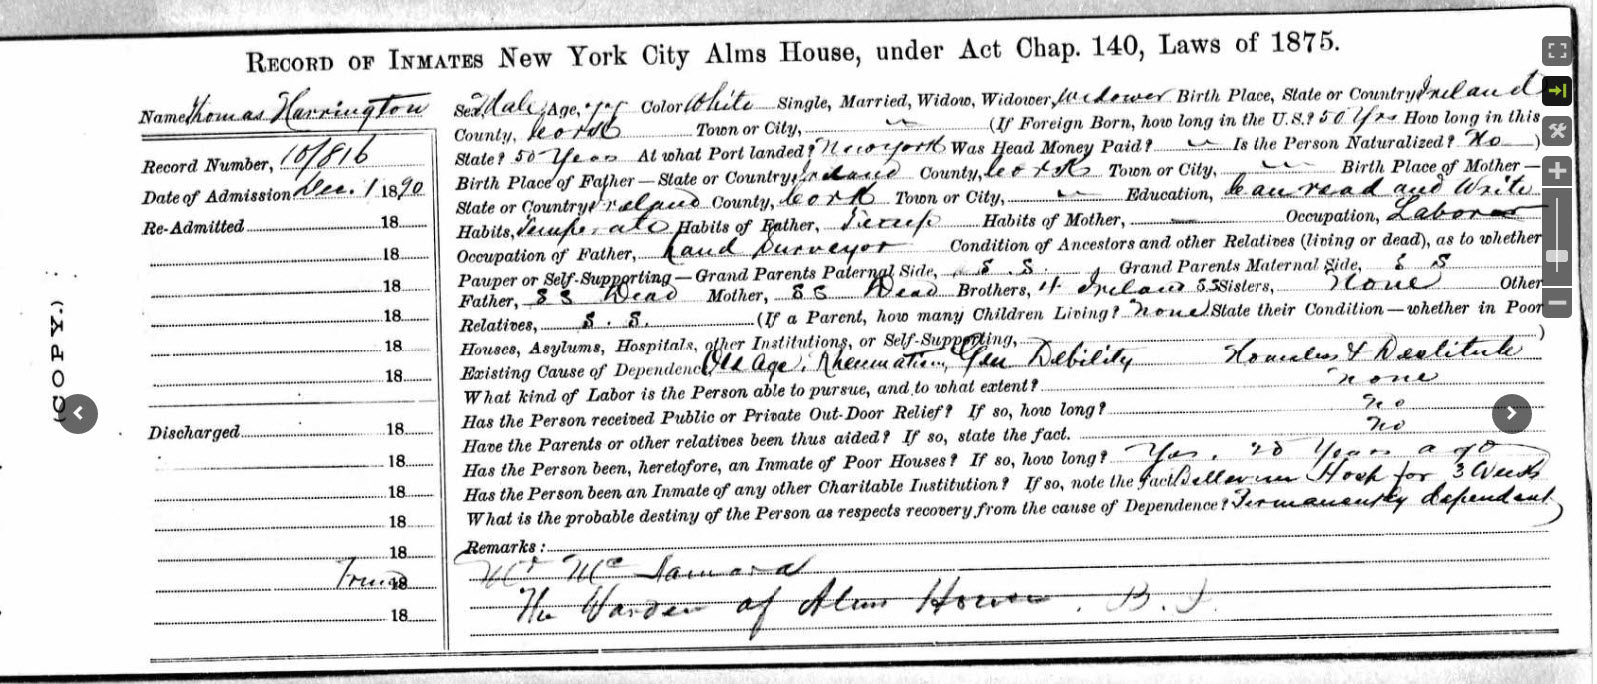 RECORD OF INMATES NEW YORK CITY ALMS HOUSE, under Act Chap. 140, Laws of 1875.
Name, Thomas Harrington
Record Number, 10/816
Date of Admission Dec. 1 1890
Re-Admitted 18
18
18
18
18
18
Discharged 18
18
18
18
18
18
18
(COPY.)
Sex, Male, Age, 77 Color White Single, Married, Widow, Widower, Widower Birth Place, State or Country, Ireland
County, Cork Town or City, (If Foreign Born, how long in the U.S.? 50 Yrs How long in this
State? 50 Years At what Port landed? New York Was Head Money Paid? Is the Person Naturalized? No )
Birth Place of Father—State or Country, Ireland County, Cork Town or City, Birth Place of Mother—
State or Country, Ireland County, Cork Town or City, Education, Can read and Write
Habits, Temperate Habits of Father, Temp Habits of Mother, — Occupation, Laborer
Occupation of Father, Land Surveyor Condition of Ancestors and other Relatives (living or dead), as to whether
Pauper or Self-Supporting—Grand Parents Paternal Side, S. S. Grand Parents Maternal Side, S S
Father, S S Dead Mother, S S Dead Brothers, 4 Ireland S S Sisters, None Other
Relatives, S. S. (If a Parent, how many Children Living? None State their Condition—whether in Poor
Houses, Asylums, Hospitals, other Institutions, or Self-Supporting, )
Existing Cause of Dependence Old Age, Rheumatism, Gen Debility Homeless & Destitute
What kind of Labor is the Person able to pursue, and to what extent? none
Has the Person received Public or Private Out-Door Relief? If so, how long? No
Have the Parents or other relatives been thus aided? If so, state the fact. No
Has the Person been, heretofore, an Inmate of Poor Houses? If so, how long? Yes, 20 Years ago
Has the Person been an Inmate of any other Charitable Institution? If so, note the fact Bellevue Hosp for 3 Weeks
What is the probable destiny of the Person as respects recovery from the cause of Dependence? Permanently dependent
Remarks:
Mr McNamara
The Warden of Alms House. B. I.